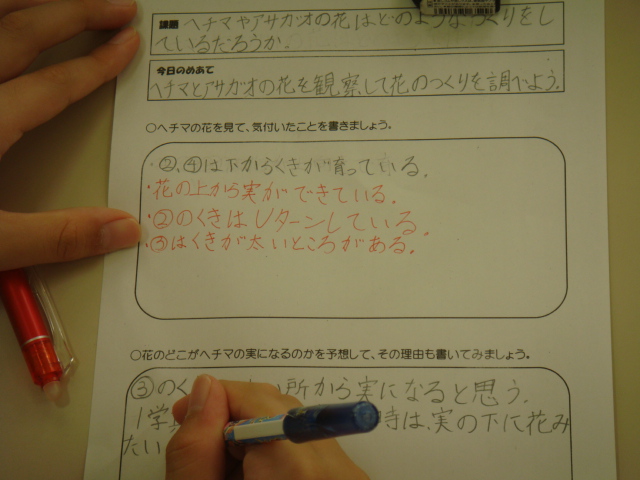 課題 ヘチマやアサガオの花はどのようなつくりをし
ているだろうか。
今日のめあて
ヘチマとアサガオの花を観察して花のつくりを調べよう。
○ヘチマの花を見て、気付いたことを書きましょう。
・②、④は下からくきが育っている。
・花の上から実ができている。
・②のくきはUターンしている。
・③はくきが太いところがある。
○花のどこがヘチマの実になるのかを予想して、その理由も書いてみましょう。
③のく い所から実になると思う。
1学 時は、実の下に花み
たい